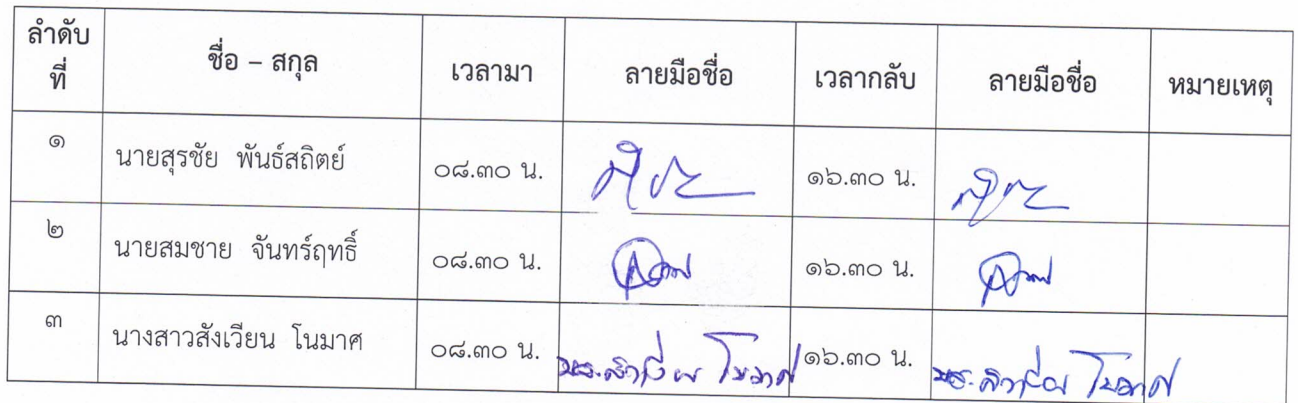 ลำดับที่ ชื่อ – สกุล เวลามา ลายมือชื่อ เวลากลับ ลายมือชื่อ หมายเหตุ
๑ นายสุรชัย พันธ์สถิตย์ ๐๘.๓๐ น. ๑๖.๓๐ น.
๒ นายสมชาย จันทร์ฤทธิ์ ๐๘.๓๐ น. ๑๖.๓๐ น.
๓ นางสาวสังเวียน โนมาศ ๐๘.๓๐ น. ๑๖.๓๐ น.